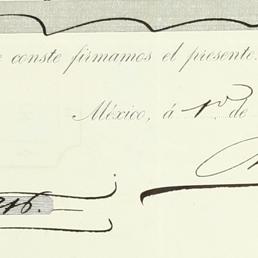 conste firmamos el presente.
México, á 1º de
216.